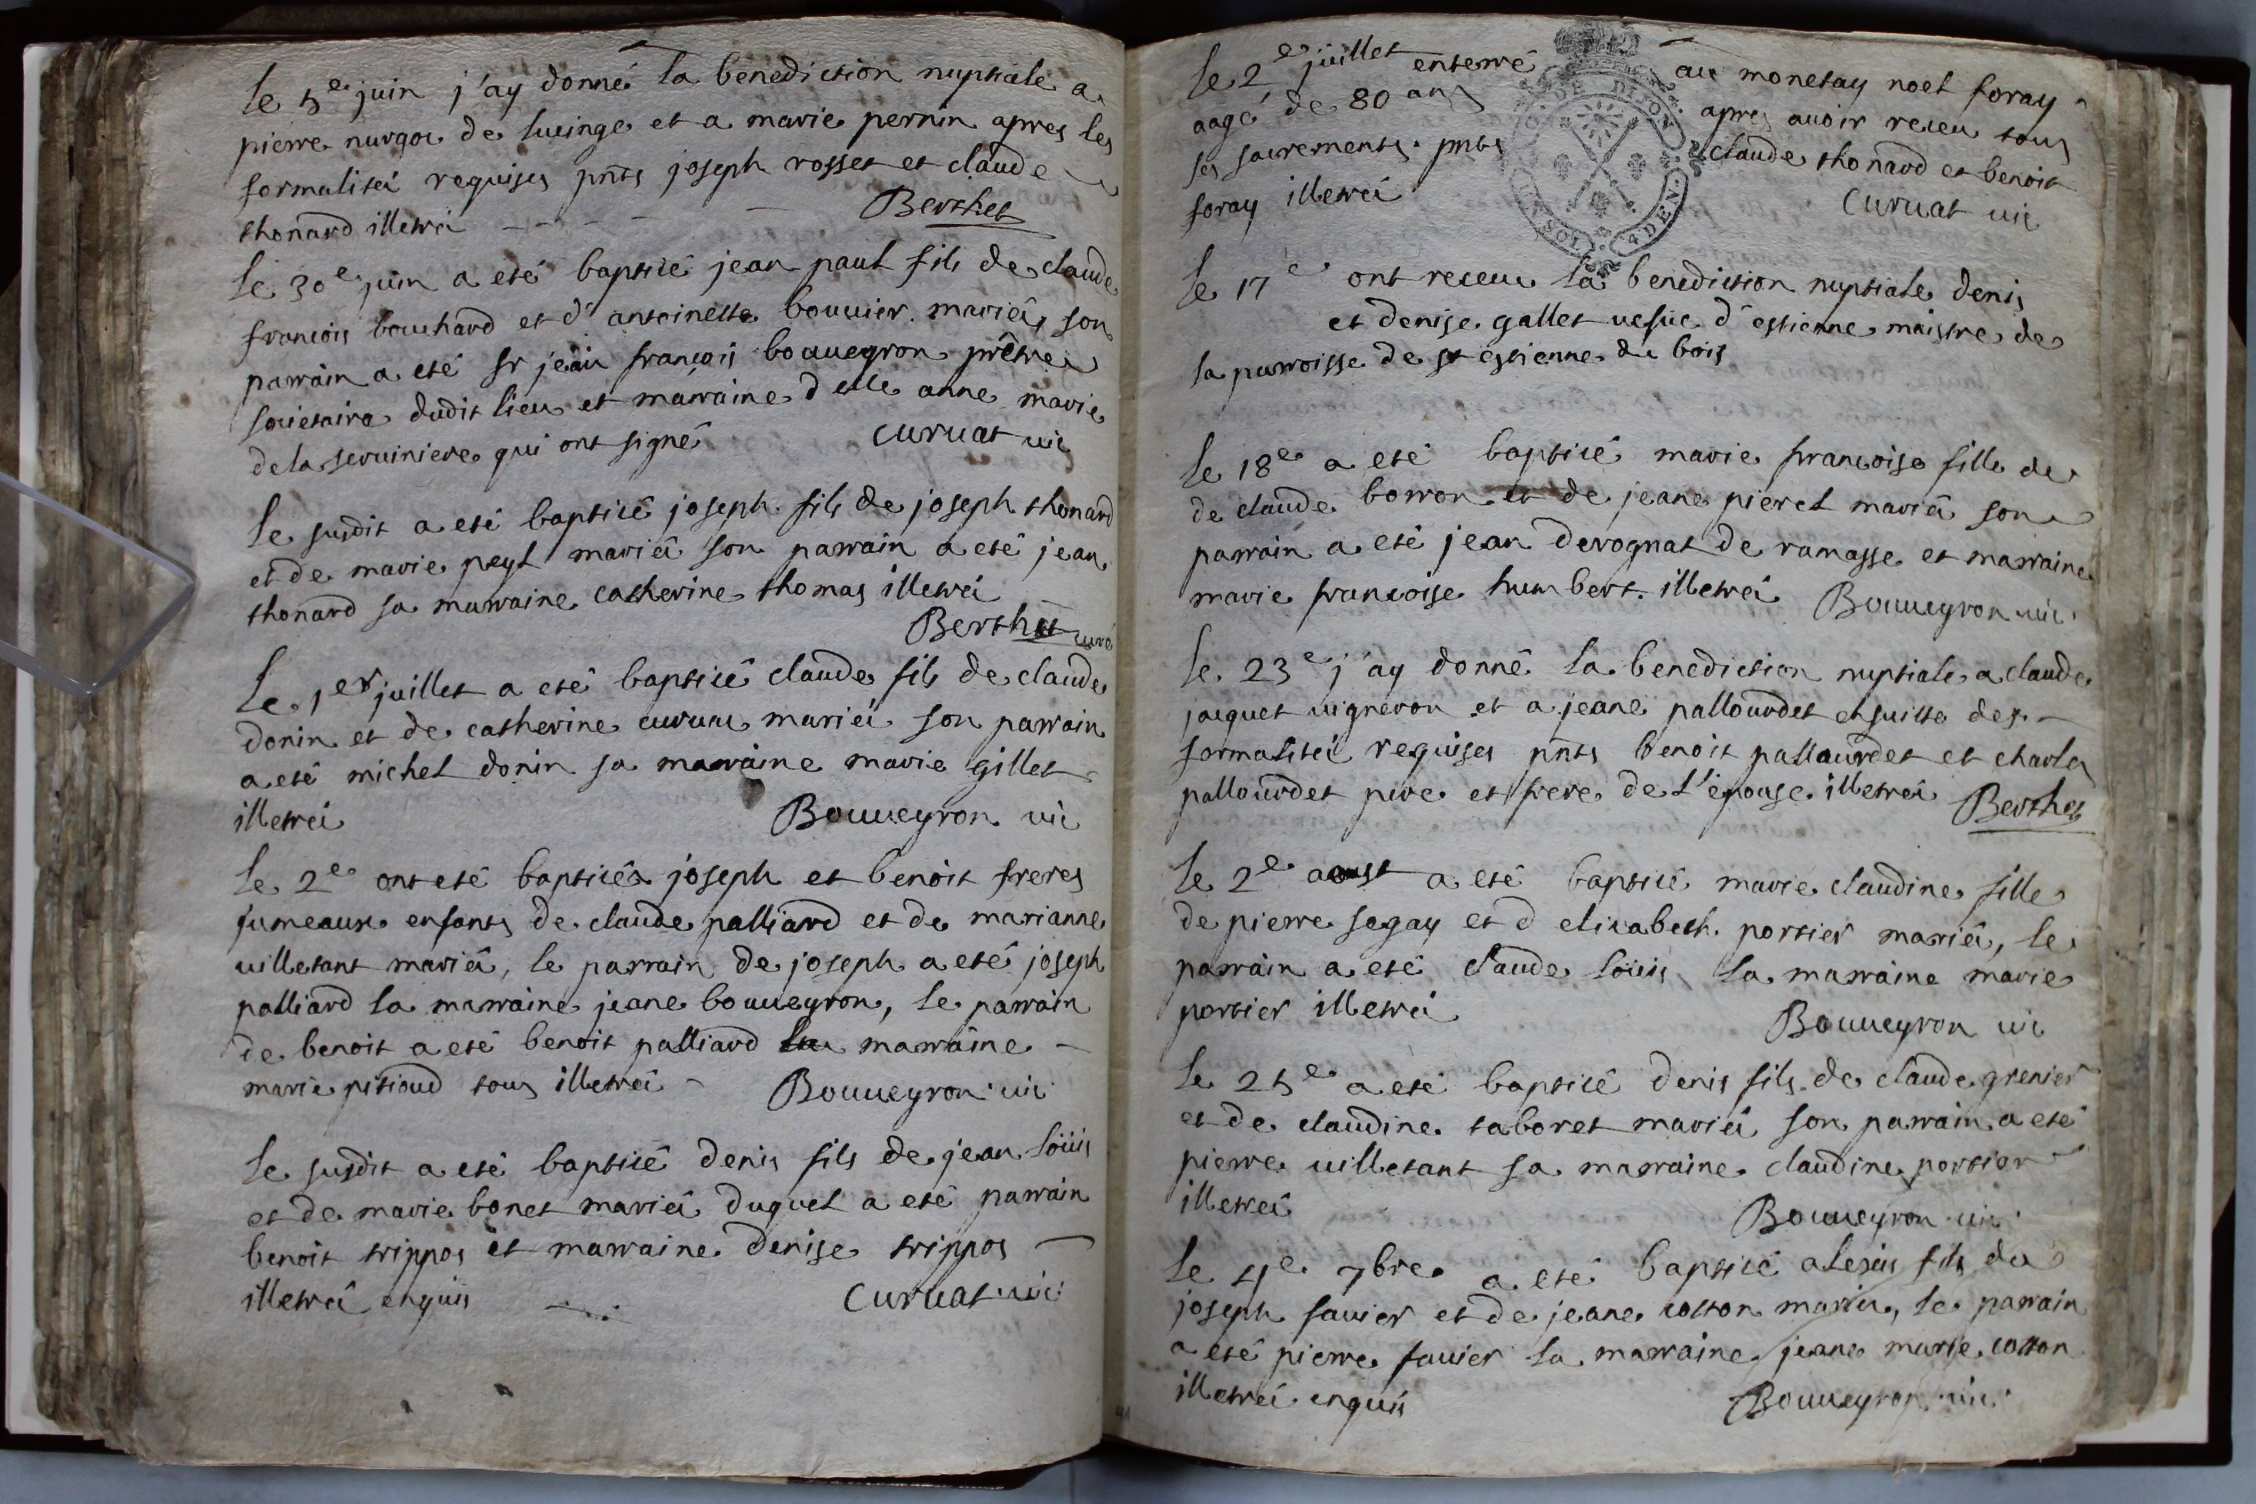 le 5e juin j'ay donné la benediction nuptiale a
pierre nurgoz de lucinge et a marie pernin apres les
formalitéz requises pnts joseph rosset et claude
thonard illetréz
Berthet
le 30e juin a eté baptisé jean paul fils de claude
francois bouchard et d'antoinette bouuier mariéz, son
parrain a eté sr jean françois bouueyron prêtre
societaire dudit lieu et marraine delle anne marie
de la seruiniere qui ont signé curuat uic
le susdit a eté baptisé joseph fils de joseph thonard
et de marie peyt mariéz son parrain a eté jean
thonard sa marraine catherine thomas illetréz
Berthet curé
le 1er juillet a eté baptisé claude fils de claude
donin et de catherine curuat mariéz son parrain
a eté michel donin sa marraine marie gillet
illetréz Bouueyron uic
le 2e ont eté baptiséz joseph et benoit freres
jumeaux enfants de claude palliard et de marianne
uilletant mariéz, le parrain de joseph a eté joseph
palliard la marraine jeane bouueyron, le parrain
de benoit a eté benoit palliard la marraine
marie pitioud tous illetréz Bouueyron uic
le susdit a eté baptisé denis fils de jean loüis
et de marie bonet mariéz duquel a eté parrain
benoit trippoz et marraine denise trippoz
illetréz enquis curuat uic
le 2e juillet enterré au monetay noel foray
aagé de 80 ans apres auoir receu tous
ses sacrements. pnts claude thonard et benoit
foray illetréz curuat uic
DE DIJON
UN SOL 4 DEN.
le 17e ont receu la benediction nuptiale denis
et denise gallet uefue d'estienne maistre de
la parroisse de st estienne du bois
le 18e a eté baptisé marie françoise fille de
de claude borron et de jeane pieret mariéz son
parrain a eté jean derognat de ramasse et marraine
marie françoise humbert. illetréz Bouueyron uic
le 23e j'ay donné la benediction nuptiale a claude
jacquet uigneron et a jeane pallourdet ensuitte des
formalitéz requises pnts benoit pallourdet et charles
pallourdet pere et frere de l'épouse illetréz Berthet
le 2e aoust a eté baptisé marie claudine fille
de pierre segay et d elisabeth portier mariéz, le
parrain a eté claude loüis la marraine marie
portier illetréz
Bouueyron uic
le 25e a eté baptisé denis fils de claude grenier
et de claudine taboret mariéz son parrain a eté
pierre uilletant sa marraine claudine portier
illetréz
Bouueyron uic
le 4e 7bre a eté baptisé alexis fils de
joseph fauier et de jeane cotton mariéz, le parrain
a eté pierre fauier la marraine jeane marie cotton
illetréz enquis Bouueyron uic